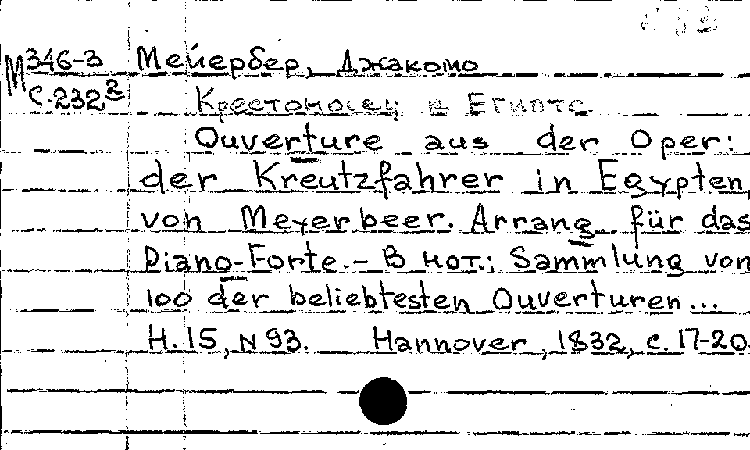 М 346-3 Мейербер, Джакомо
С.232²
Крестоносец в Египте
Ouverture aus der Oper:
der Kreutzfahrer in Egypten,
von Meyerbeer. Arrang. für das
Piano-Forte.- В нот.: Sammlung von
100 der beliebtesten Ouverturen...
H.15, N 93. Hannover, 1832, с. 17-20.